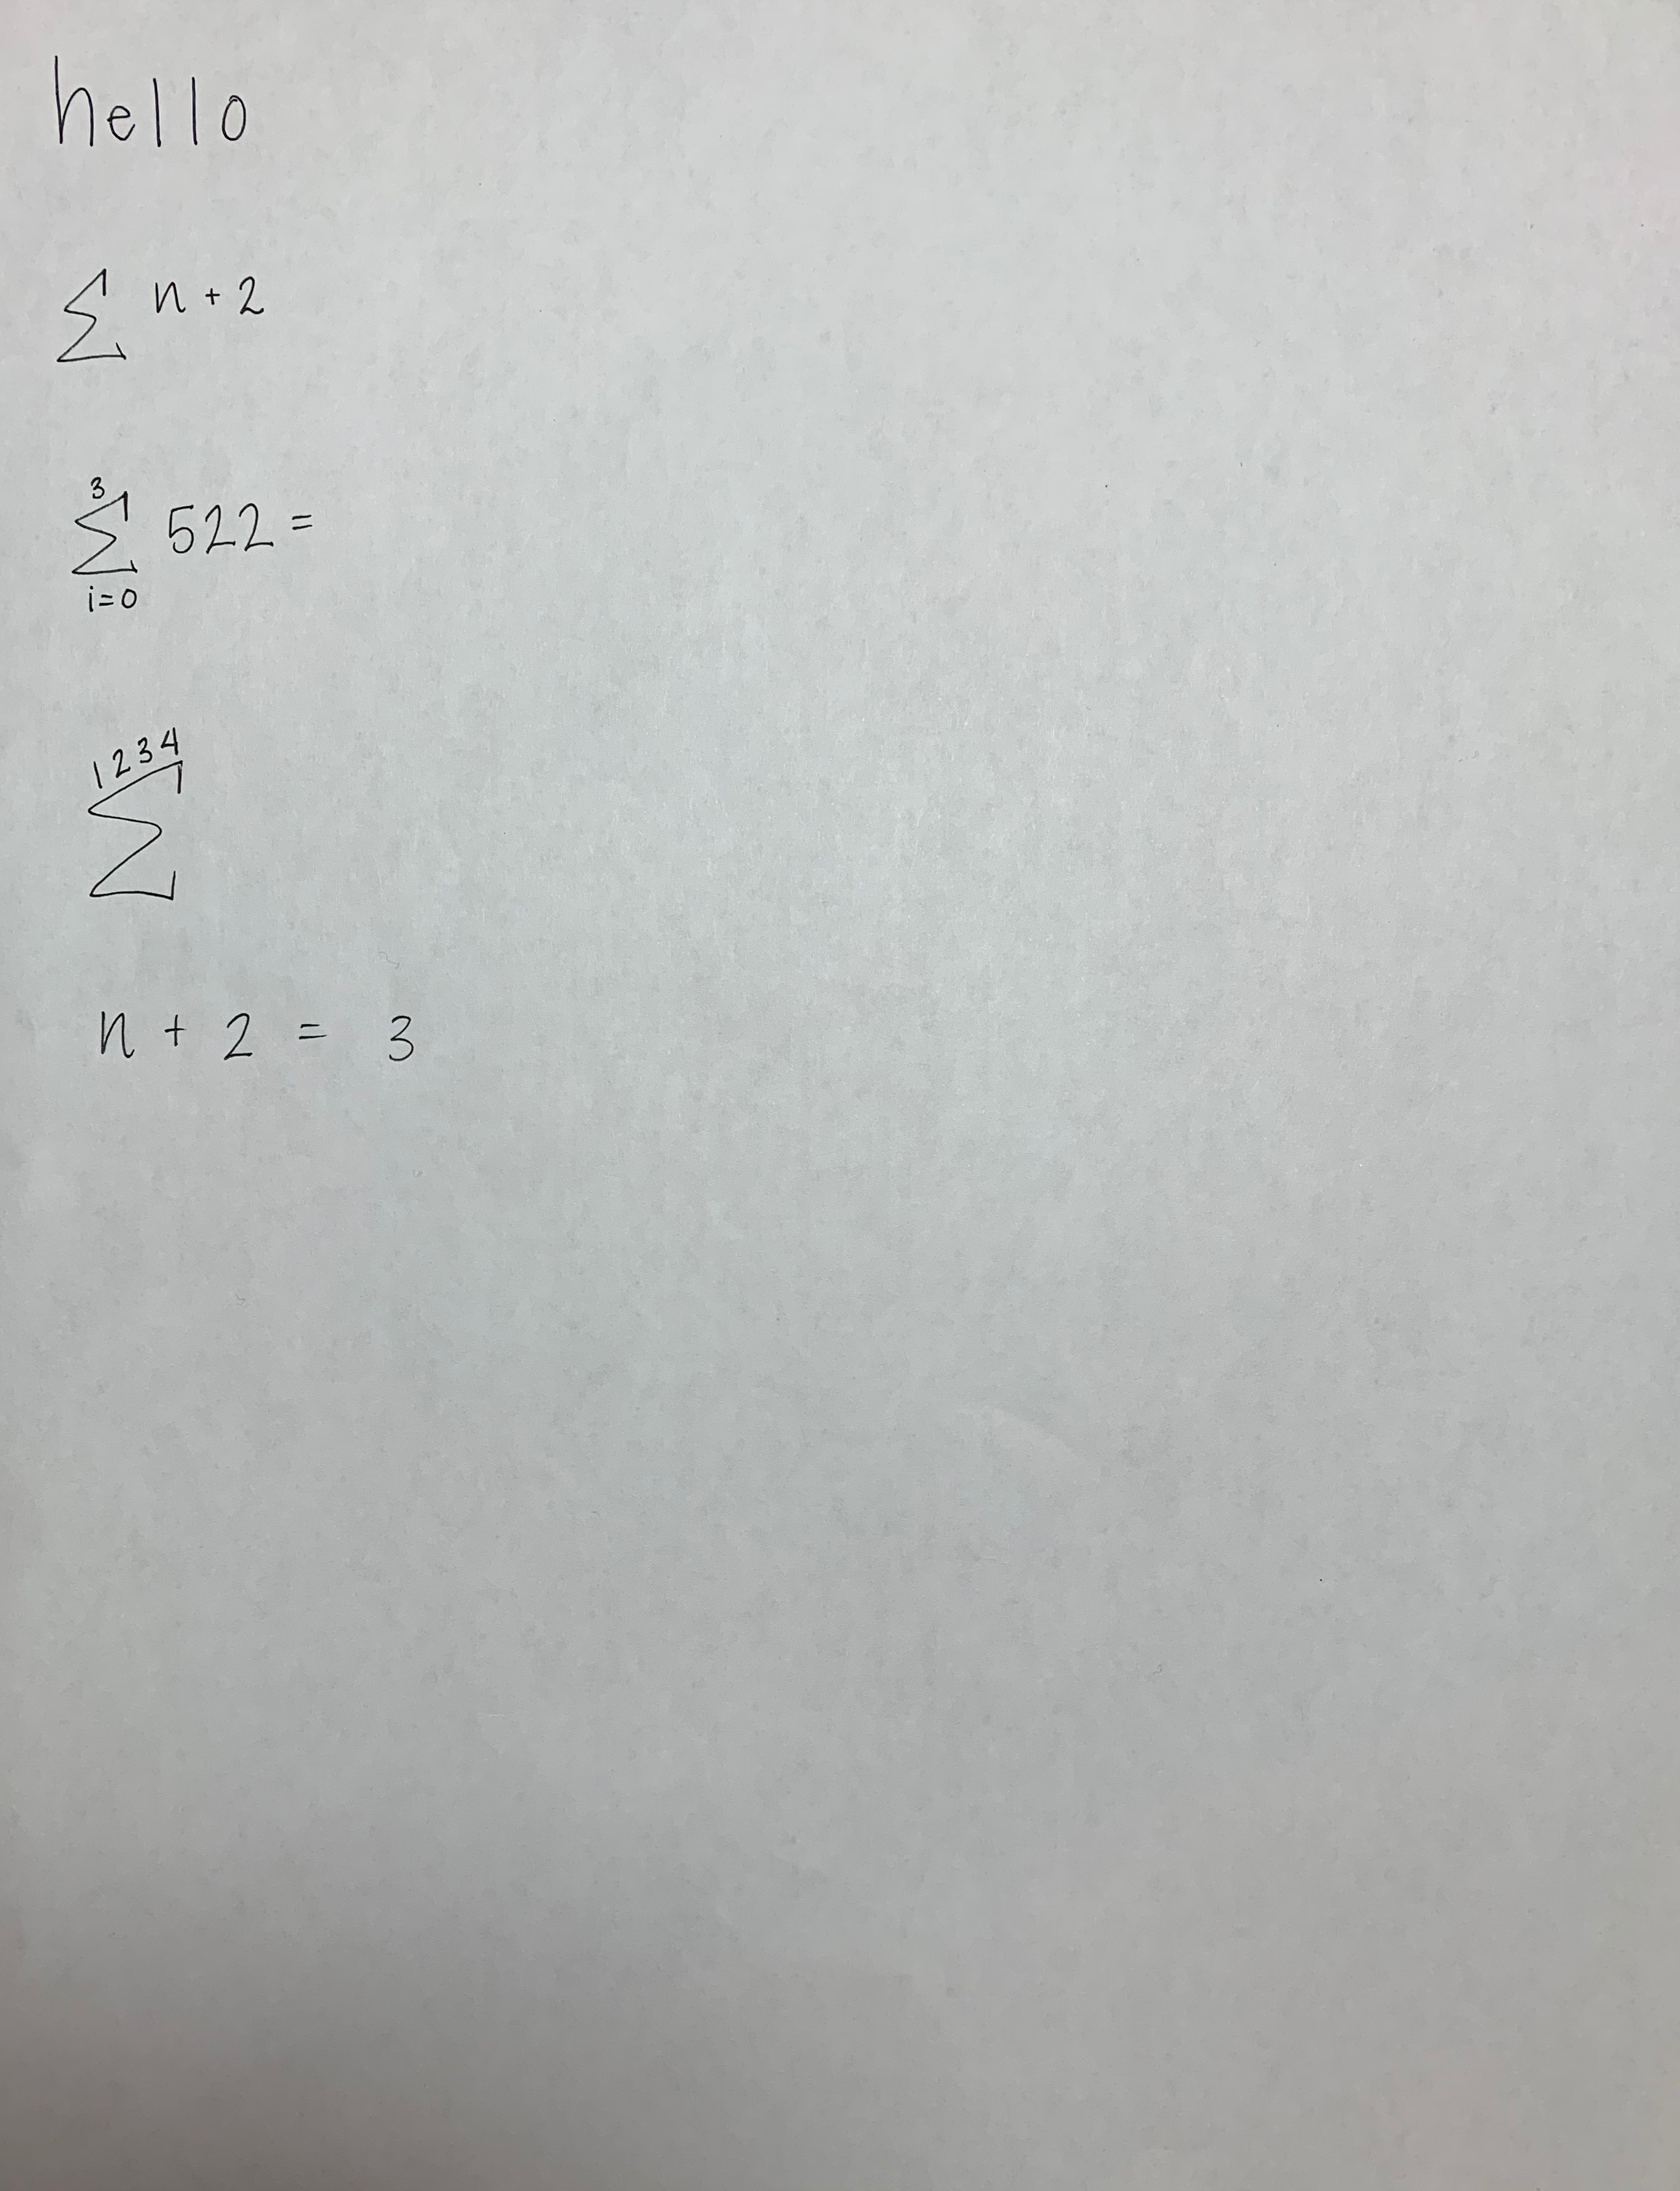 hello
∑ n + 2
3
∑ 522 =
i=0
1234
∑
n + 2 = 3